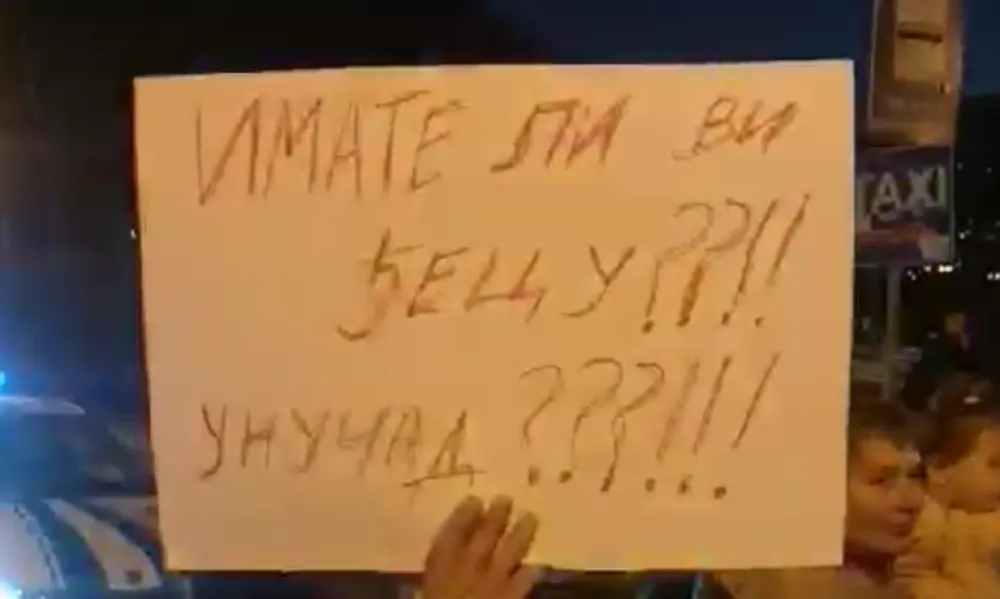 ИМАТЕ ЛИ ВИ
ЂЕЦУ??!!
УНУЧАД???!!!
TAXI